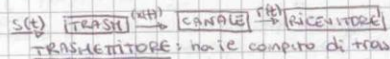 s(t) TRASM. x(t) CANALE r(t) RICEVITORE
TRASMETTITORE: ha il compito di tras